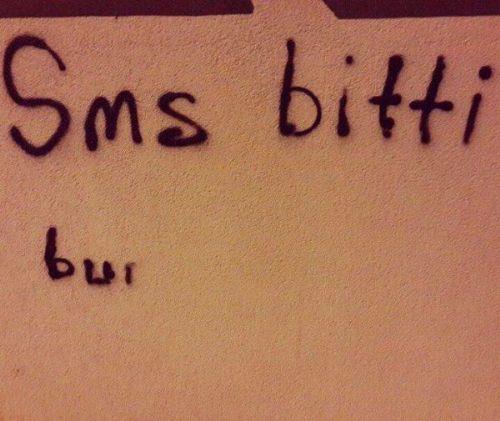 Sms bitti